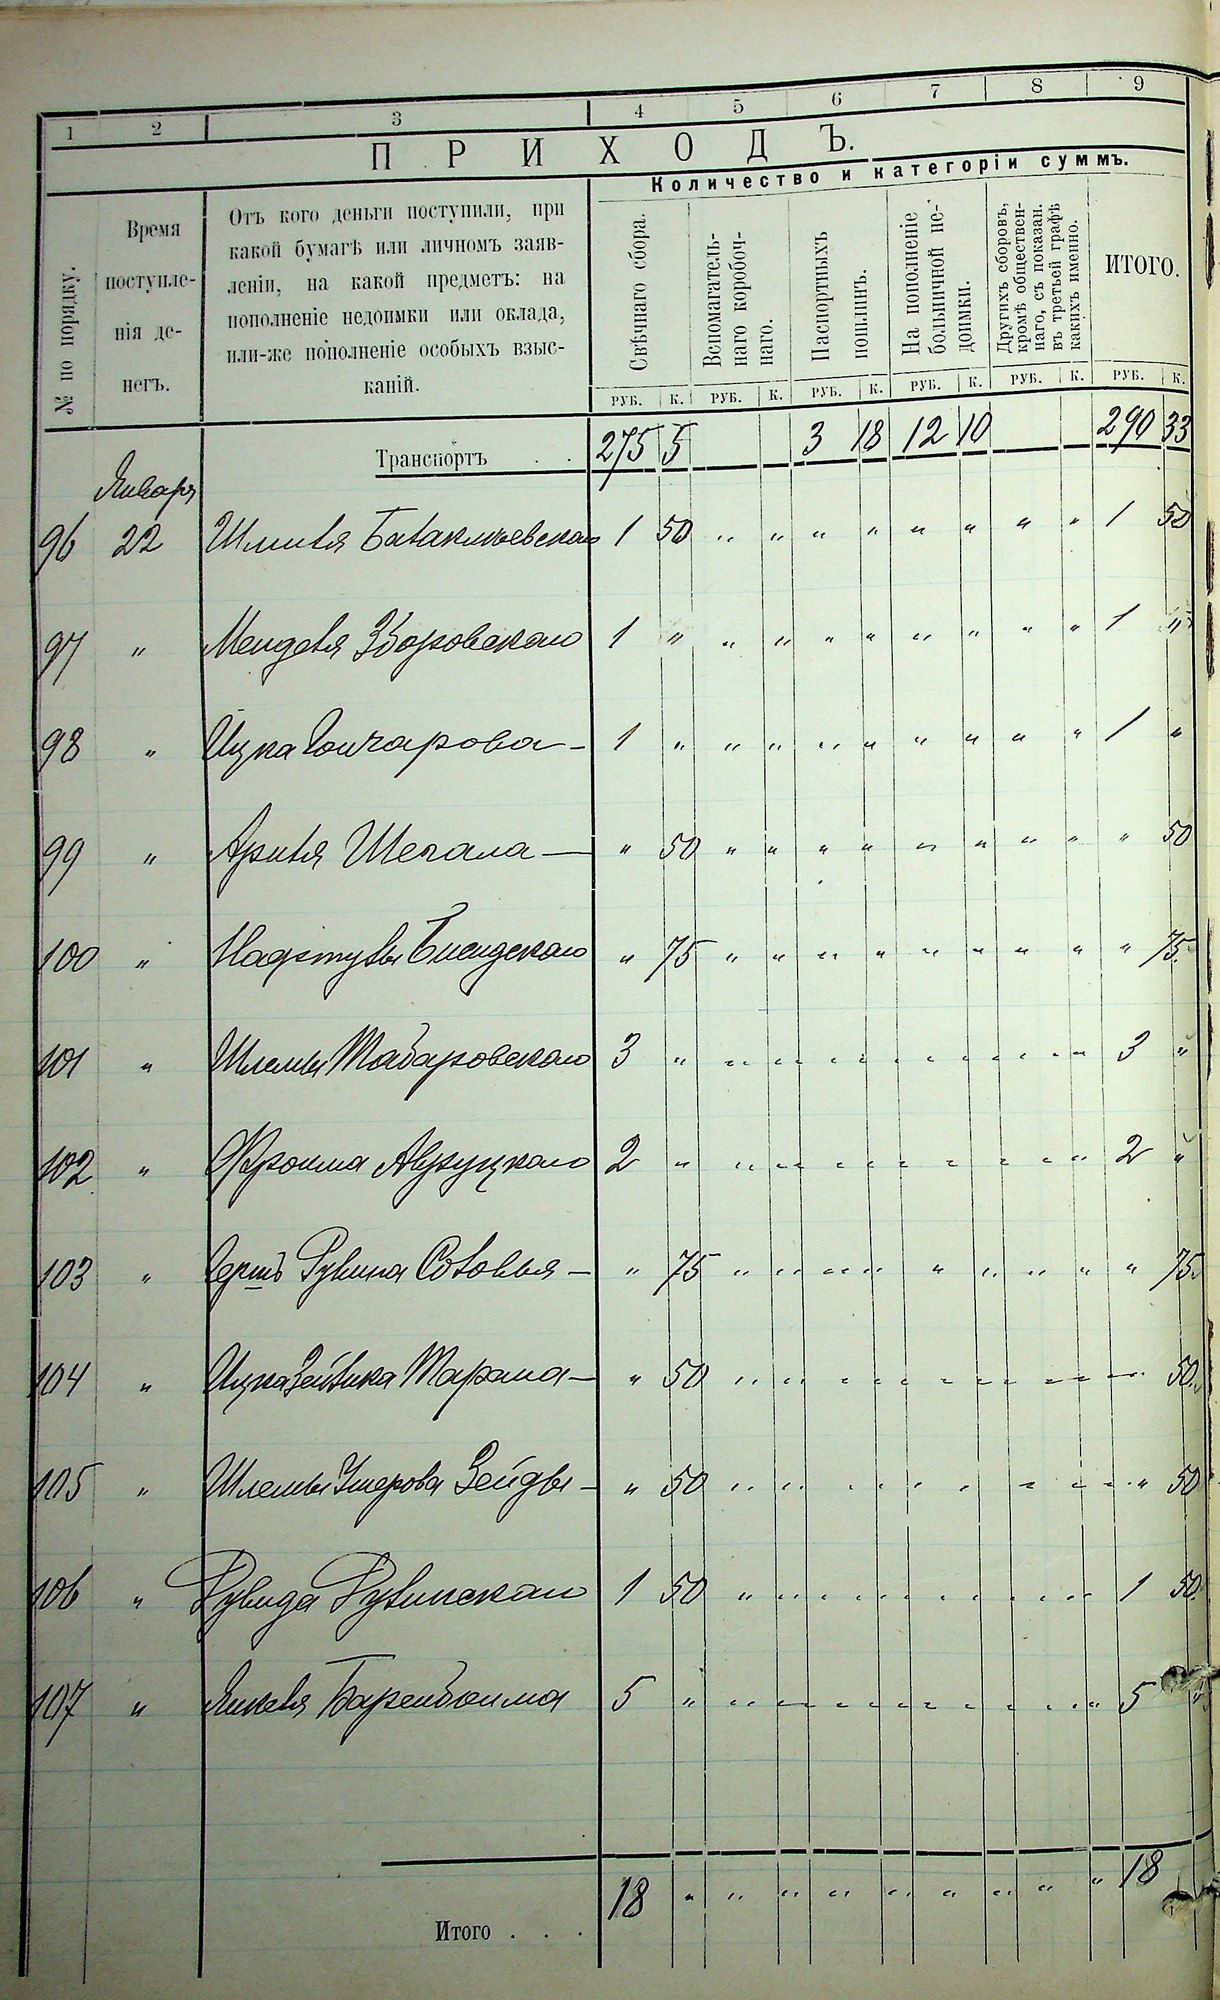 1 2 3 4 5 6 7 8 9
ПРИХОДЪ.
Количество и категоріи суммъ.
№ по порядку.
Время
поступле-
нія де-
негъ.
Отъ кого деньги поступили, при
какой бумагѣ или личномъ заяв-
леніи, на какой предметъ: на
пополненіе недоимки или оклада,
или-же пополненіе особыхъ взыс-
каній.
Свѣчнаго сбора.
Вспомагатель-
наго коробоч-
наго.
Паспортныхъ
пошлинъ.
На пополненіе
больничной не-
доимки.
Другихъ сборовъ,
кромѣ обществен-
наго, съ показан.
въ третьей графѣ
какихъ именно.
ИТОГО.
РУБ. К. РУБ. К. РУБ. К. РУБ. К. РУБ. К. РУБ. К.
Транспортъ . . 275 5 3 18 12 10 290 33
Января
96 22 Шмиля 1 50 " " " " " " " " 1 50
97 " Менделя Зборовскаго 1 " " " " " " " " " 1 "
98 " Ицка Гончарова — 1 " " " " " " " " " 1 "
99 " Арыля Шегала — " 50 " " " " " " " " " 50
100 " " 75 " " " " " " " " " 75
101 " Шлемы Табаровскаго 3 " " " " " " " " " 3 "
102 " Фроима Авруцкаго 2 " " " " " " " " " 2 "
103 " Герша Рувина — " 75 " " " " " " " " " 75
104 " Ицка Тарана — " 50 " " " " " " " " " 50
105 " Шлемы Ушерова Зейды — " 50 " " " " " " " " " 50
106 " Рувина 1 50 " " " " " " " " 1 50
107 " Янкеля Баренбойма 5 " " " " " " " " " 5 "
Итого . . . 18 " " " " " " " " " 18